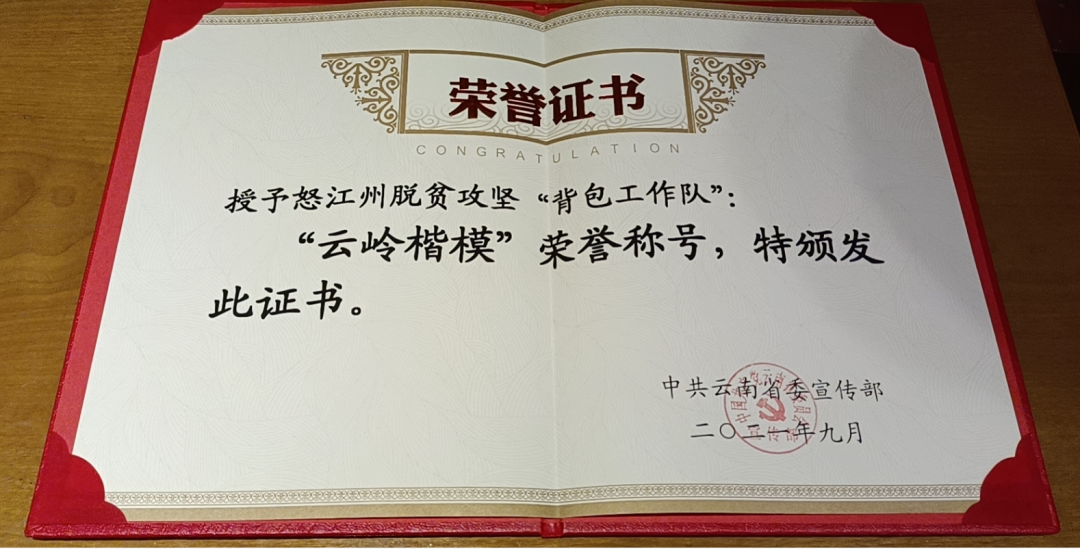 荣誉证书
CONGRATULATION
授予怒江州脱贫攻坚“背包工作队”：
“云岭楷模”荣誉称号，特颁发
此证书。
中共云南省委宣传部
二〇二一年九月